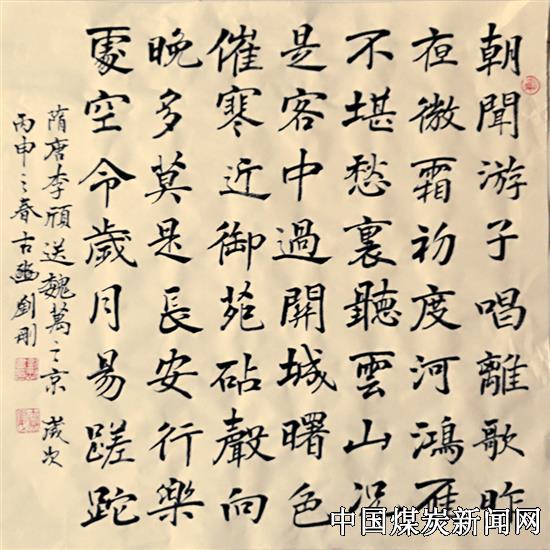 朝聞游子唱離歌昨
夜微霜初度河鴻雁
不堪愁裏聽雲山況
是客中過關城曙色
催寒近御苑砧聲向
晚多莫是長安行樂
處空令歲月易蹉跎
隋唐李頎送魏萬之京 歲次
丙申之春古幽劉剛
中国煤炭新闻网